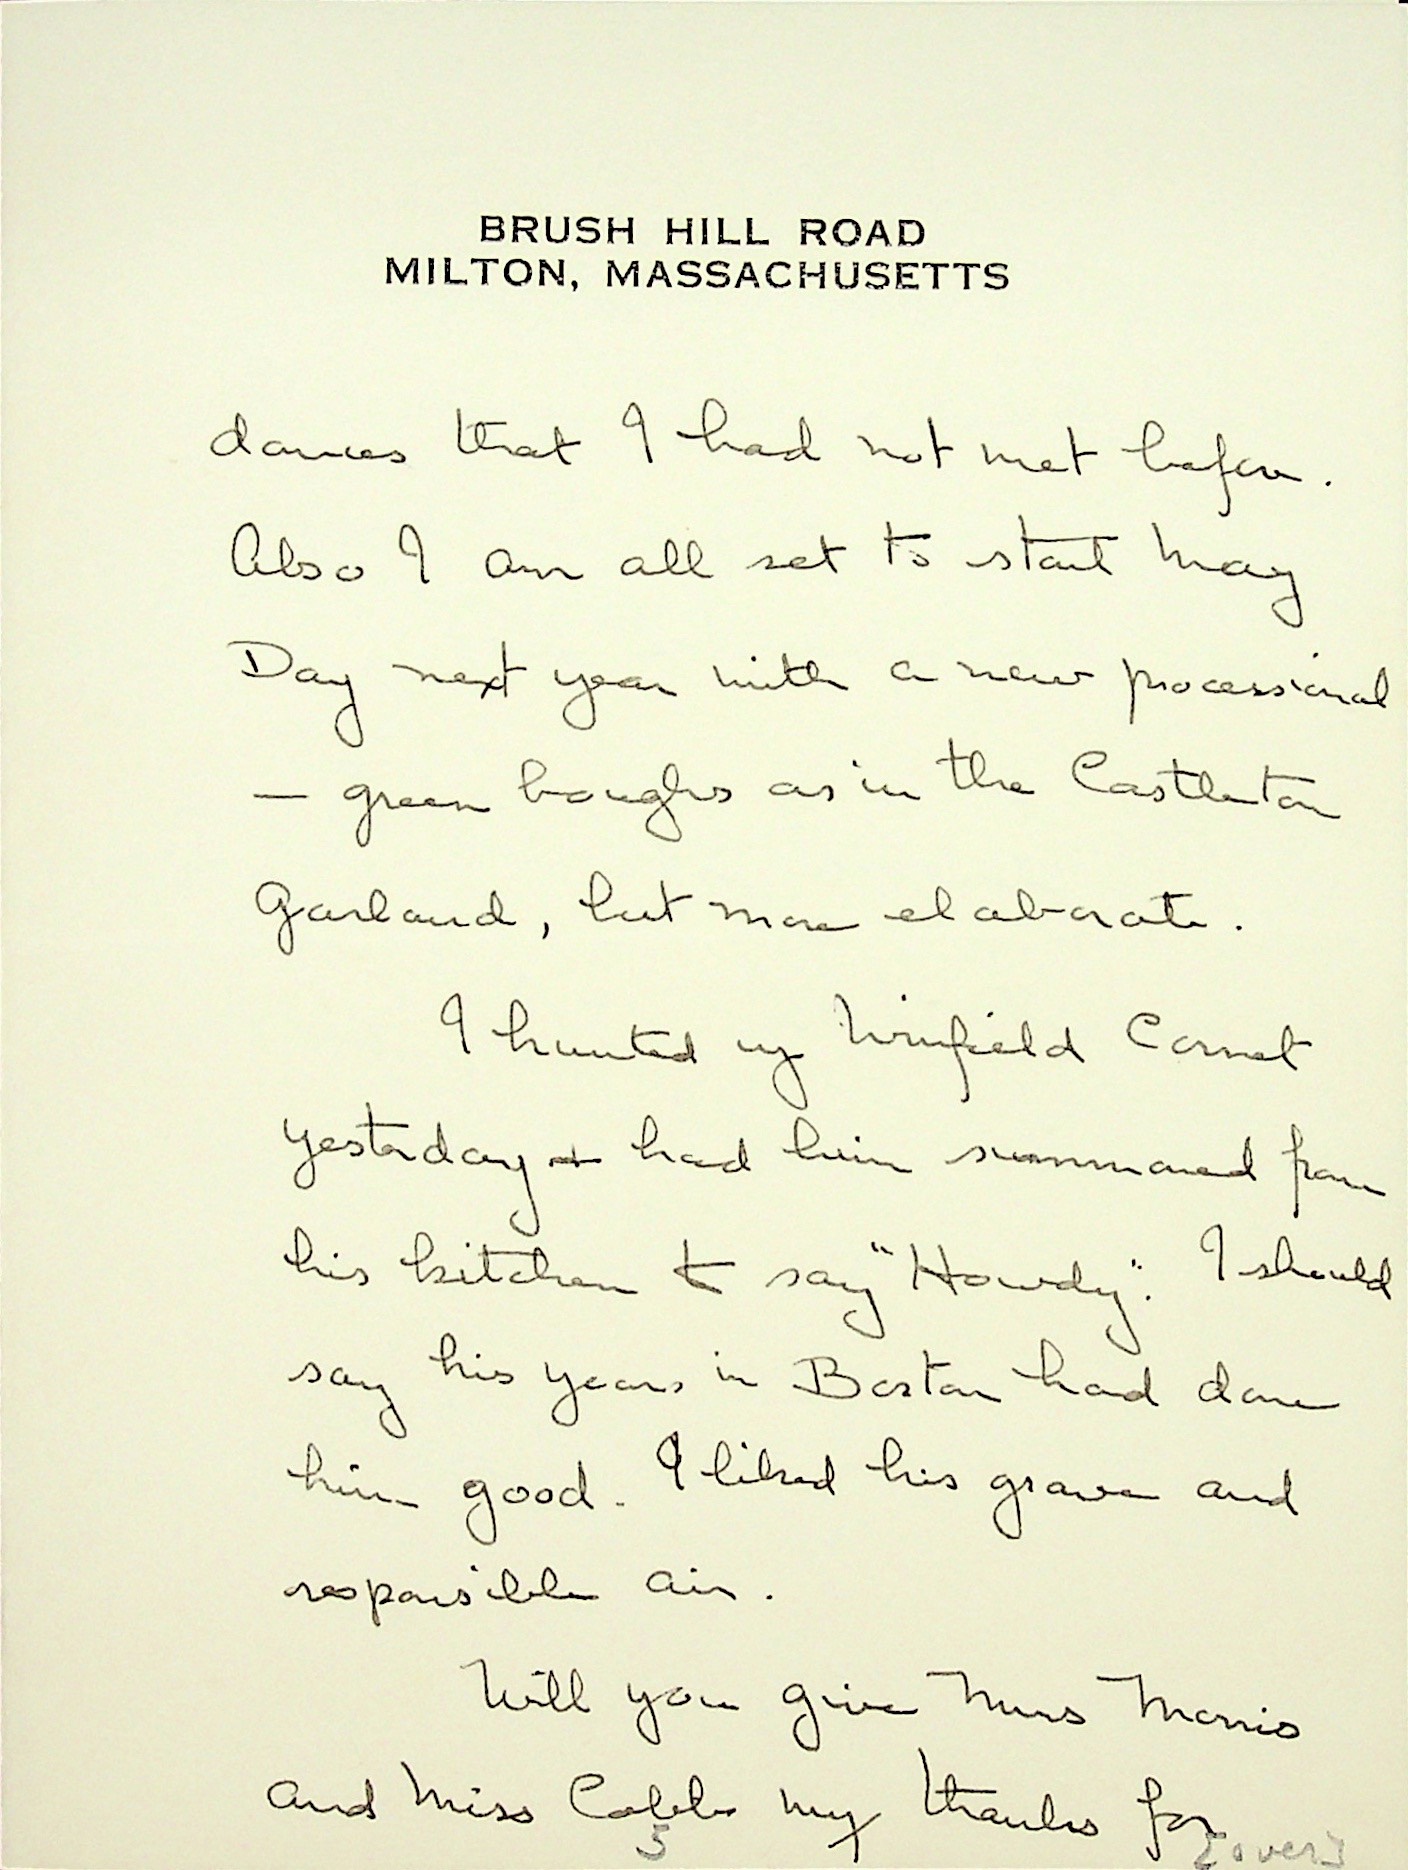 BRUSH HILL ROAD
MILTON, MASSACHUSETTS
dances that I had not met before.
Also I am all set to start May
Day next year with a new processional
— green boughs as in the Castleton
Garland, but more elaborate.
I hunted up Winfield Cornet
yesterday + had him summoned from
his kitchen to say "Howdy". I should
say his years in Boston had done
him good. I liked his grave and
responsible air.
Will you give Mrs Morris
and Miss Cobb my thanks for
5 [over]